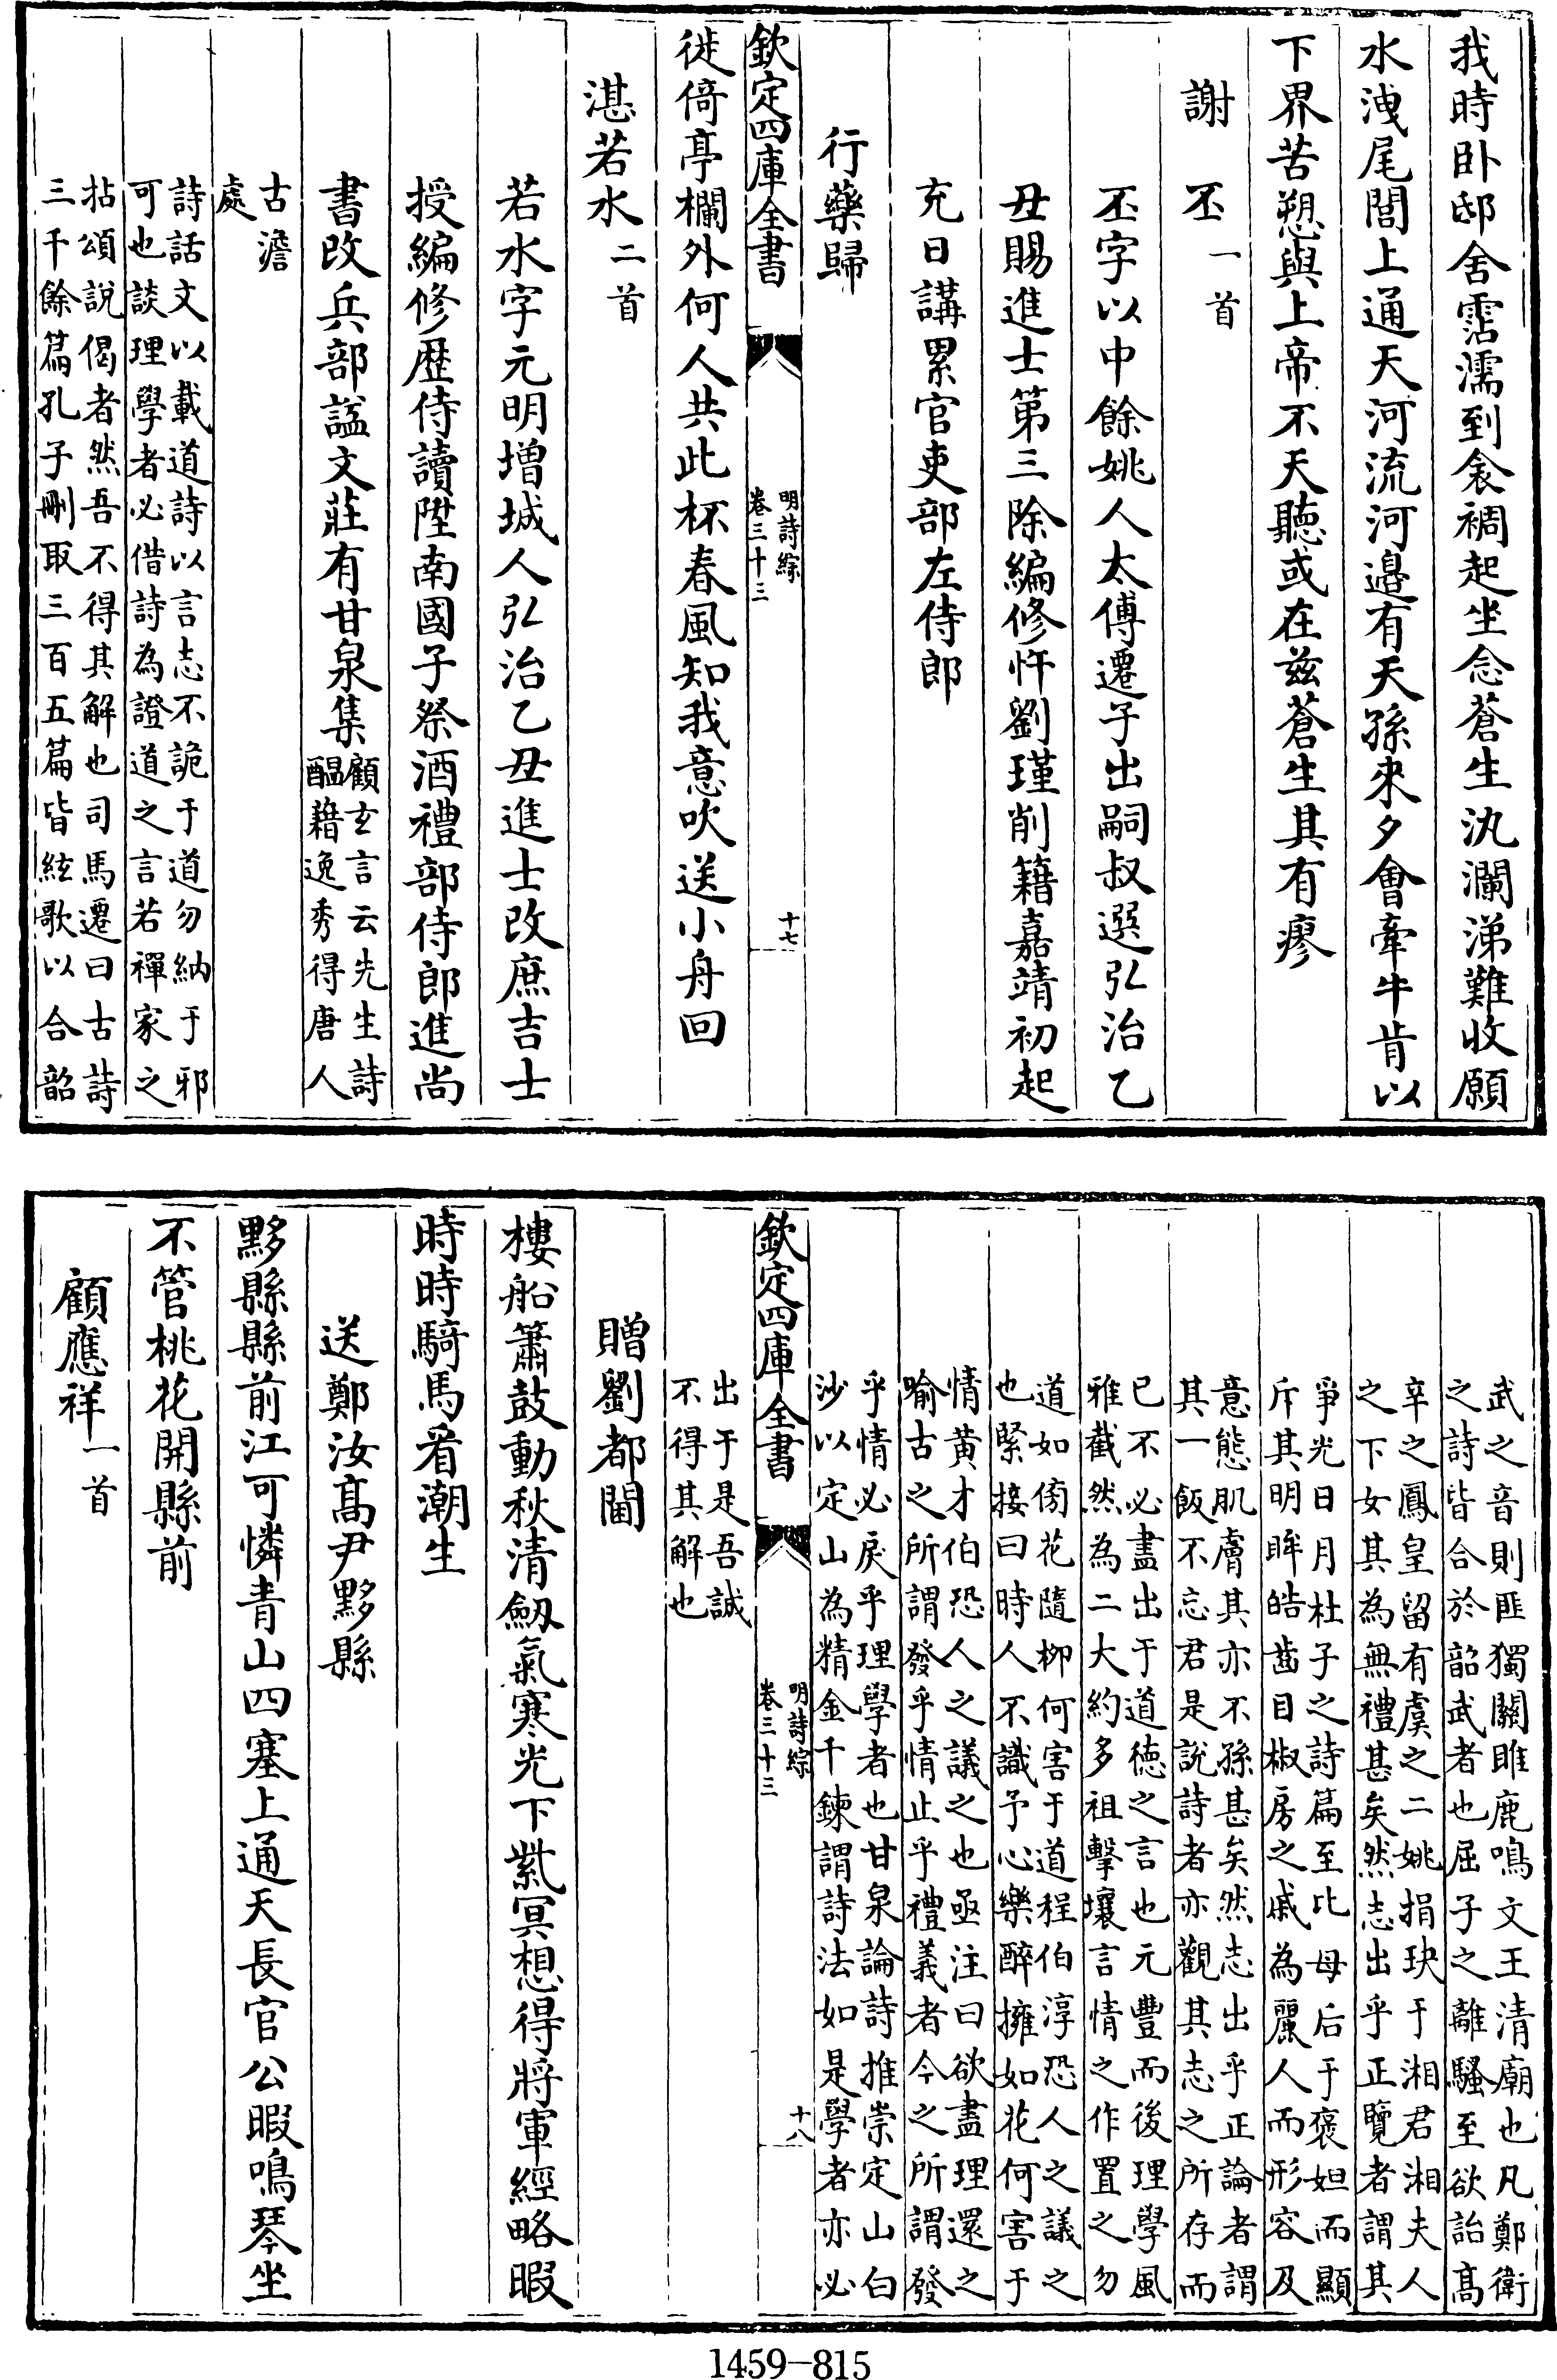 我時卧邸舍霑濡到衾裯起坐念蒼生汍瀾涕難收願
水洩尾閭上通天河流河邉有天孫來夕會牽牛肯以
下界苦愬與上帝不天聽或在兹蒼生其有瘳
謝丕一首
丕字以中餘姚人太傅遷子出嗣叔選弘治乙
丑賜進士第三除編修忤劉瑾削籍嘉靖初起
充日講累官吏部左侍郎
行藥歸
欽定四庫全書
明詩綜
卷三十三
十七
徙倚亭欄外何人共此杯春風知我意吹送小舟回
湛若水二首
若水字元明增城人弘治乙丑進士改庶吉士
授編修歴侍讀陞南國子祭酒禮部侍郎進尚
書改兵部諡文莊有甘泉集
顧玄言云先生詩
醖藉逸秀得唐人
古澹
處
詩話文以載道詩以言志不詭于道勿納于邪
可也談理學者必借詩為證道之言若禪家之
拈頌說偈者然吾不得其解也司馬遷曰古詩
三千餘篇孔子刪取三百五篇皆絃歌以合韶
武之音則匪獨關雎鹿鳴文王清廟也凡鄭衛
之詩皆合於韶武者也屈子之離騷至欲詒高
辛之鳳皇留有虞之二姚捐玦于湘君湘夫人
之下女其為無禮甚矣然志出乎正覽者謂其
爭光日月杜子之詩篇至比母后于褒妲而顯
斥其明眸皓齒目椒房之戚為麗人而形容及
意態肌膚其亦不孫甚矣然志出乎正論者謂
其一飯不忘君是說詩者亦觀其志之所存而
已不必盡出于道徳之言也元豐而後理學風
雅截然為二大約多祖擊壤言情之作置之勿
道如傍花隨柳何害于道程伯淳恐人之議之
也緊接曰時人不識予心樂醉擁如花何害于
情黄才伯恐人之議之也亟注曰欲盡理還之
喻古之所謂發乎情止乎禮義者今之所謂發
乎情必戻乎理學者也甘泉論詩推崇定山白
沙以定山為精金千鍊謂詩法如是學者亦必
欽定四庫全書
明詩綜
卷三十三
十八
出于是吾誠
不得其解也
贈劉都閫
樓船簫鼓動秋清劒氣寒光下紫冥想得將軍經略暇
時時騎馬看潮生
送鄭汝髙尹黟縣
黟縣縣前江可憐青山四塞上通天長官公暇鳴琴坐
不管桃花開縣前
顧應祥一首
1459-815